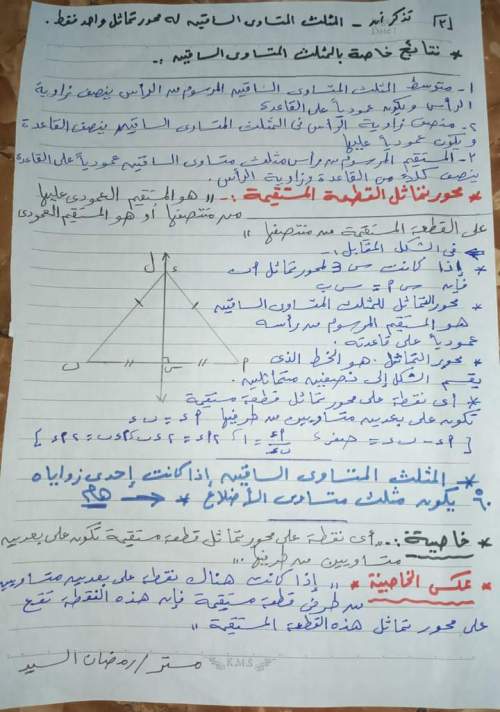 [٣] تذكر أن - المثلث المتساوى الساقين له محور تماثل واحد فقط.
* نتائج خاصة بالمثلث المتساوى الساقين :-
١- متوسط المثلث المتساوى الساقين المرسوم من الرأس ينصف زاوية
الرأس ويكون عمودياً على القاعدة
٢- منصف زاوية الرأس فى المثلث المتساوى الساقين ينصف القاعدة
ويكون عمودياً عليها
٣- المستقيم المرسوم من رأس مثلث متساوى الساقين عمودياً على القاعدة
ينصف كلاً من القاعدة وزاوية الرأس.
* محور تماثل القطعة المستقيمة :- " هو المستقيم العمودى عليها
من منتصفها أو هو المستقيم العمودى
على القطعة المستقيمة من منتصفها "
فى الشكل المقابل :-
* إذا كانت س ∈ لمحور تماثل أب
فإن س أ = س ب
* محور التماثل للمثلث المتساوى الساقين
هو المستقيم المرسوم من رأسه
عمودياً على قاعدته
* محور التماثل . هو الخط الذى
يقسم الشكل إلى نصفين متماثلين.
* أى نقطة على محور تماثل قطعة مستقيمة
تكون على بعدين متساويين من طرفيها
ل
ء
ب
س
أ
* المثلث المتساوى الساقين إذا كانت إحدى زواياه ٦٠
يكون مثلث متساوى الأضلاع * ← هام
* خاصية :- " أى نقطة على محور تماثل قطعة مستقيمة تكون على بعدين
متساويين من طرفيها "
* عكس الخاصية * " إذا كانت هناك نقطة على بعدين متساويين
من طرفى قطعة مستقيمة فإن هذه النقطة تقع
على محور تماثل هذه القطعة المستقيمة "
مستر / رمضان السيد
K.M.S